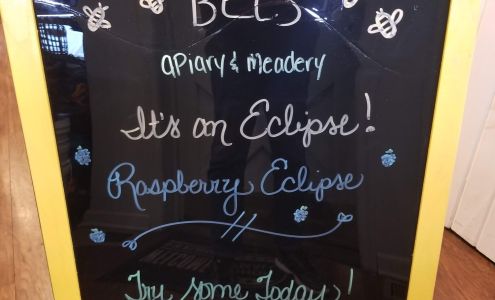 BEES
apiary & meadery
It's an Eclipse!
Raspberry Eclipse
Try some Today!